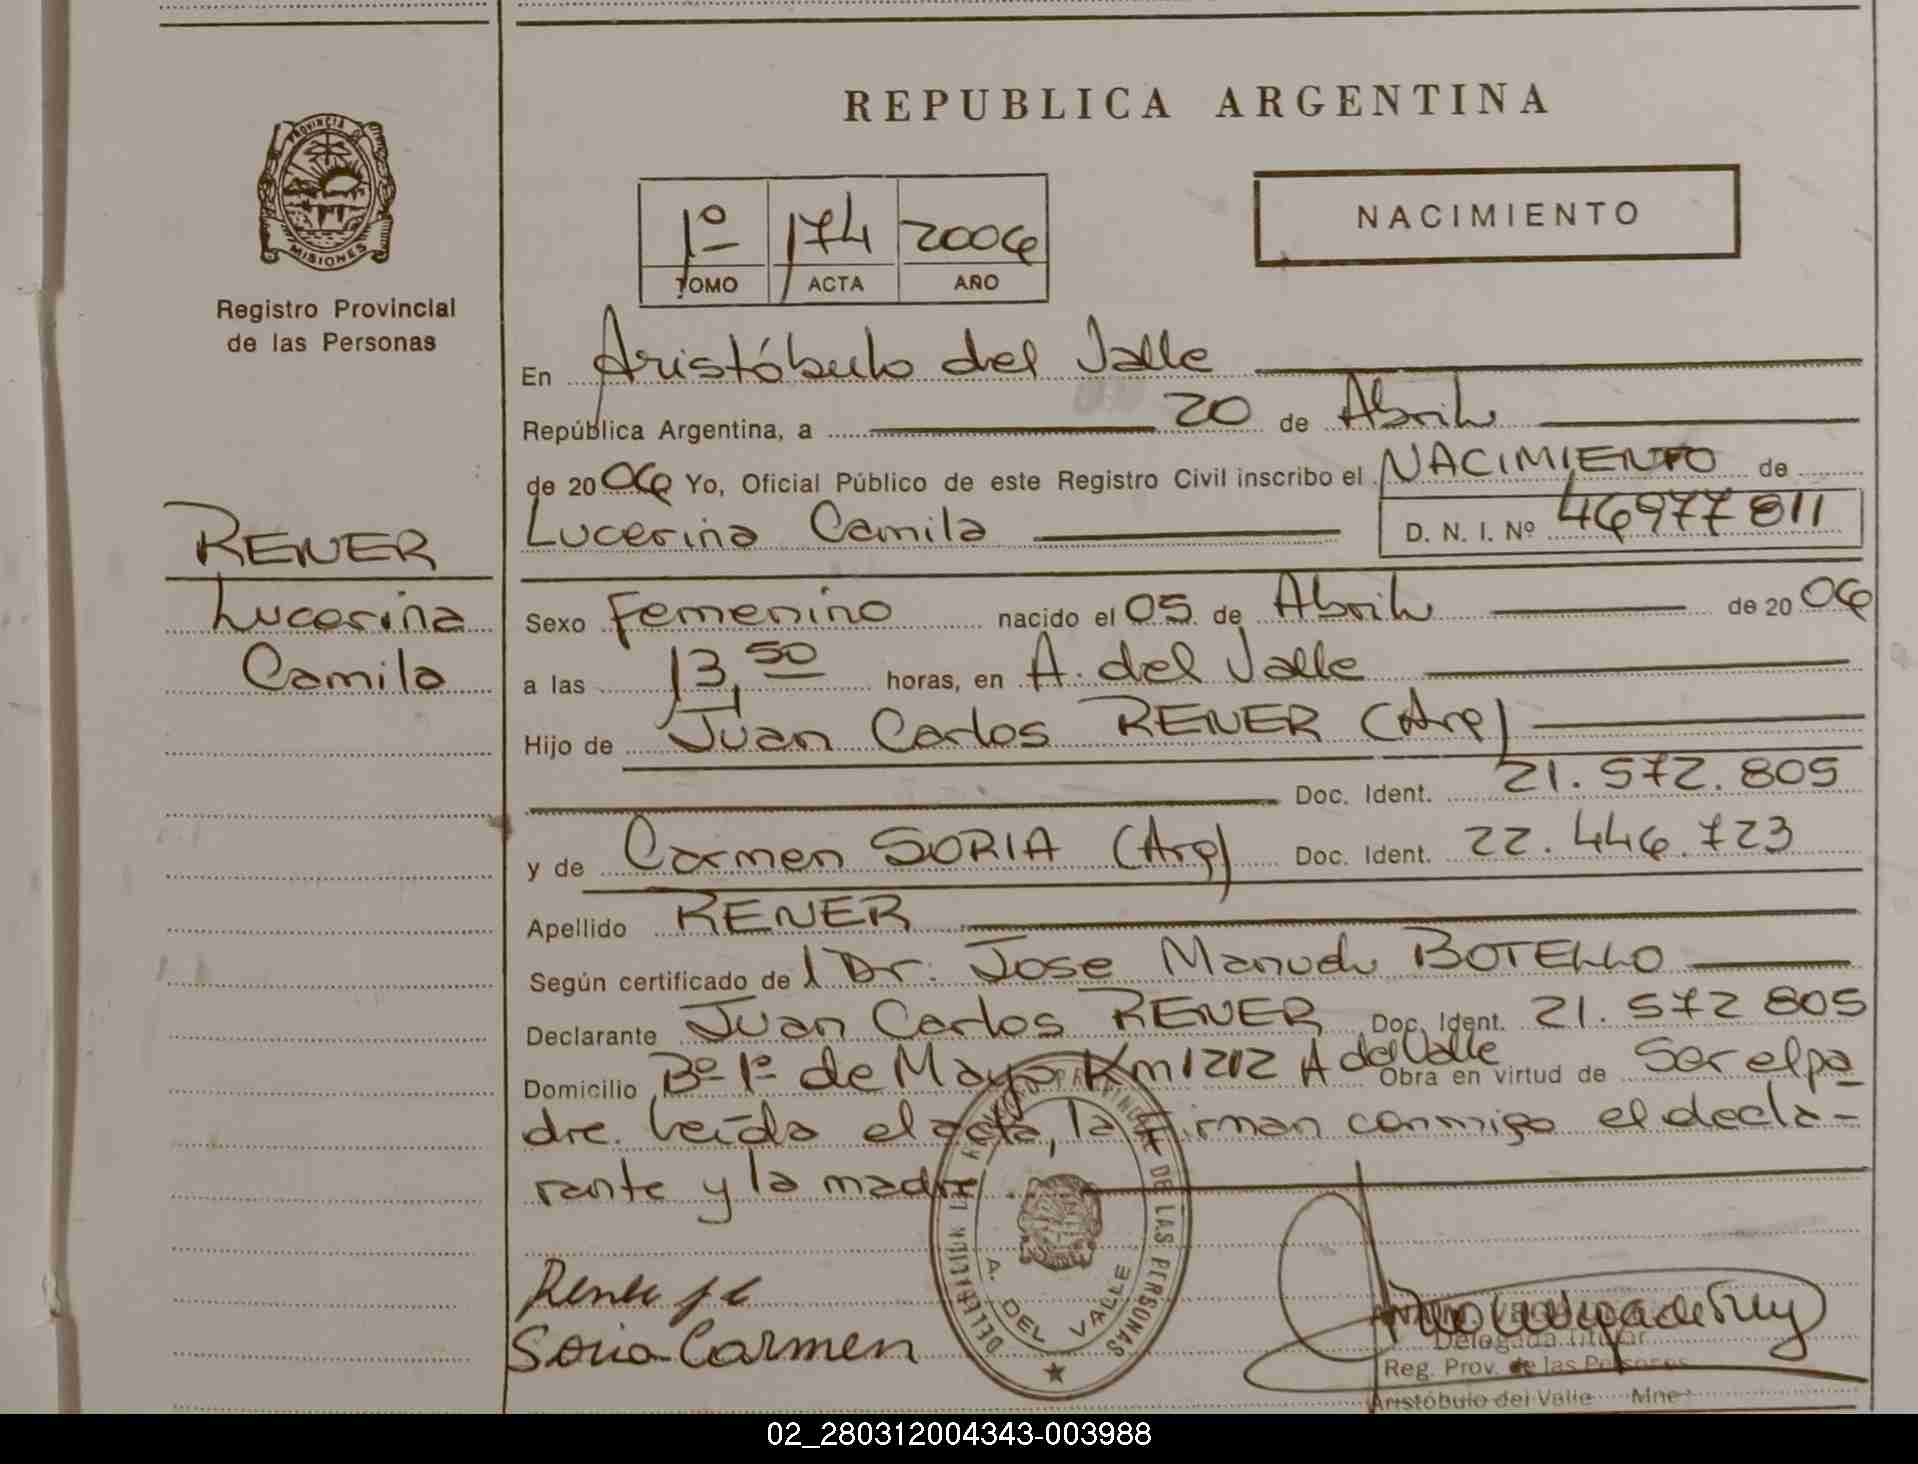 REPUBLICA ARGENTINA
PROVINCIA DE
MISIONES
Registro Provincial
de las Personas
1º 174 2006
TOMO ACTA AÑO
NACIMIENTO
En Aristóbulo del Valle
República Argentina, a 20 de Abril
de 2006 Yo, Oficial Público de este Registro Civil inscribo el NACIMIENTO de
Lucerina Camila D. N. I. Nº 46977811
RENER
Lucerina
Camila
Sexo Femenino nacido el 05 de Abril de 2006
a las 13,50 horas, en A. del Valle
Hijo de Juan Carlos RENER (Arg)
Doc. Ident. 21.572.805
y de Carmen SORIA (Arg) Doc. Ident. 22.446.723
Apellido RENER
Según certificado de l Dr. Jose Manuel BOTELLO
Declarante Juan Carlos RENER Doc. Ident. 21.572 805
Domicilio Bº 1º de Mayo Km 1212 A del Valle Obra en virtud de Ser el pa
dre. Leída el acta, la firman conmigo el decla-
rante y la madre.
DE LAS PERSONAS
A. DEL VALLE
Rener J C
Soria Carmen
Delegada Titular
Reg. Prov. de las Personas
Aristóbulo del Valle Mnes
02_280312004343-003988